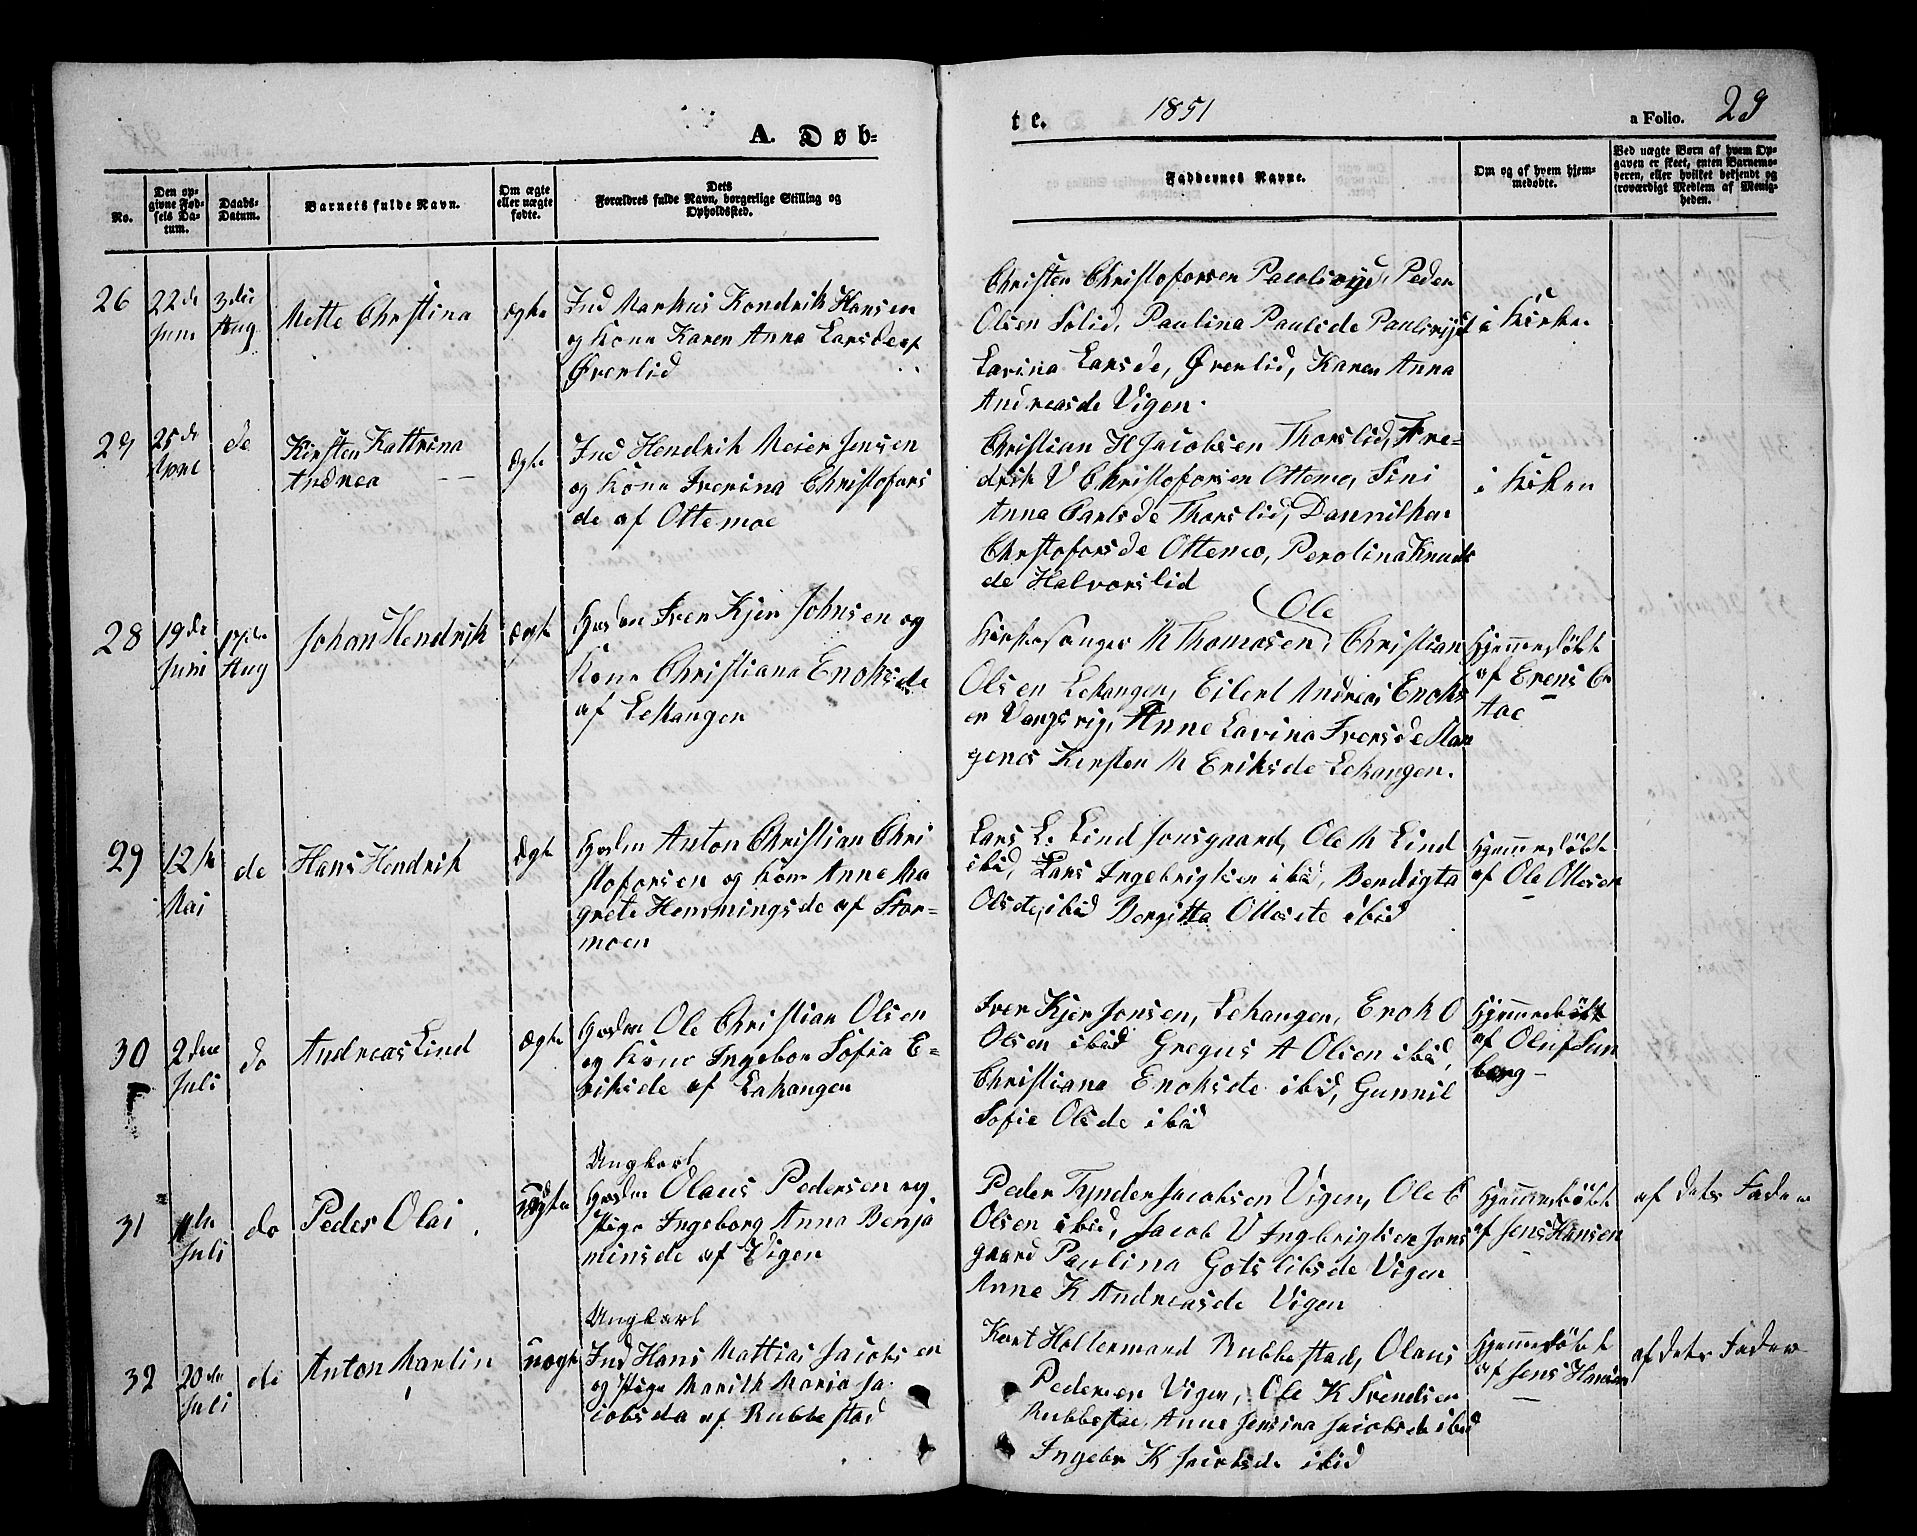 A. Døb-
te.
1851
a Folio. 29
No.
Den op-
givne Fød-
sels Da-
tum.
Daabs-
Datum.
Barnets fulde Navn.
Om ægte
eller uægte
fødte.
Dets
Forældres fulde Navn, borgerlige Stilling og
Opholdssted.
Faddernes Navne.
Om og af hvem hjem-
medøbte.
Ved uægte Børn af hvem Op-
gaven er skeet, enten Barnemo-
deren, eller hvilket bekjendt og
troværdigt Medlem af Menig-
heden.
26
22de
Juni
3die
Aug
Mette Christina
ægte
Ind Markus Hendrik Hansen
og Kone Karen Anna Larsde af
Øverlid
Christen Christoforsen Paulsryd, Peder
Olsen Solid, Paulina Paulsde Paulsryd
Lavina Larsde, Øverlid, Karen Anna
Andreasde Vigen.
i Kirken
27
25de
do
Kirsten Kattrina
Andrea
ægte
Ind Hendrik Meier Jensen
og Kone Iverina Christofors
de af Ottemoe
Christian H Jacobsen Thorslid, Fre-
drik V Christoforsen Ottemo, Sini
Anna Carlsde Thorslid,
Christoforsde Ottemo, Perolina Knuds
de Halvorslid
i Kirken
28
19de
Juni
17de
Aug
Johan Hendrik
ægte
Iver Kjer Johnsen og
Kone Christiana Enoksde
af Lekangen
Ole
Kirkesanger M Thomasen, Christian
Olsen Lekangen, Eilert Andreas Enoks
en Vangsvig, Anne Lavina Iversde
Kirsten M Eriksde Lekangen.
Hjemmedøbt
af Erens E
Aae
29
12te
Mai
do
Hans Hendrik
ægte
Anton Christian Chri
stoforsen og Kone Anne Ma
grete Hemmingsde af Stor-
moen
Lars L. Lind Jonsgaard, Ole M Lind
ibid, Lars Ingebrigtsen ibid, Bendigta
Olsde, ibid Bergitta Ollesde ibid
Hjemmedøbt
af Ole Ollesen
30
2den
Juli
do
Andreas Lind
ægte
Ole Christian Olsen
og Kone Ingebor Sofia E-
riksde af Lekangen
Iver Kjer Jonsen, Lekangen, Enok O
Olsen ibid Gregus A Olsen ibid,
Christiana Enoksde ibid, Gunnil
Sofie Olsde ibid
Hjemmedøbt
af Oluf Sun
berg
31
Juli
do
Peder Olai
uægte
Ungkarl
Olaus Pedersen og
Pige Ingeborg Anna Benja
minsde af Vigen
Peder Tynder Jacobsen Vigen, Ole E
Olsen ibid, Jacob V Ingbrigtsen Jons
gaard Paulina Gotslibsde Vigen
Anne K Andreasde Vigen
Hjemmedøbt
af Jens Hansen
af dets Fader
32
20de
Juli
do
Anton Martin
uægte
Ungkarl
Ind Hans Mattias Jacobsen
og Pige Marith Maria Ja
cobsda af Rubbestad
Kort Holtermand Rubbestad, Olaus
Pedersen Vigen, Ole K Svendsen
Rubbestad, Anne Jensina Jacobsde ibid
Ingebr K Jacobsde ibid
Hjemmedøbt
af Jens Hansen
af dets Fader